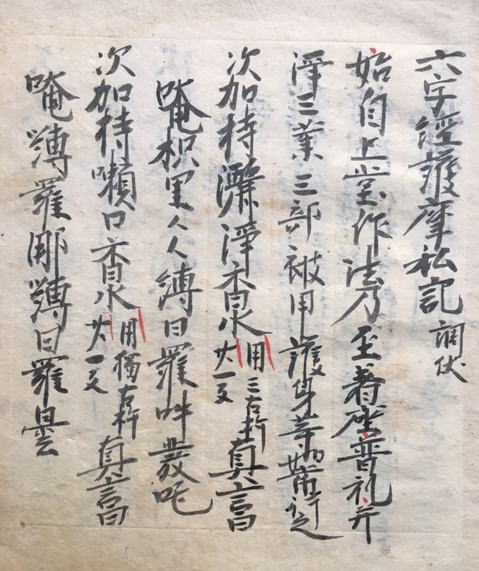 六字經護摩私記 調伏
始自上堂作法乃至着座普礼并
淨三業三部被甲護身等如常行之
次加持灑淨香水 用三古杵 廿一反 真言曰
唵枳里人人縛日羅吽發吒
次加持嗽口香水 用獨古杵 廿一反 真言曰
唵縛羅那縛日羅曇